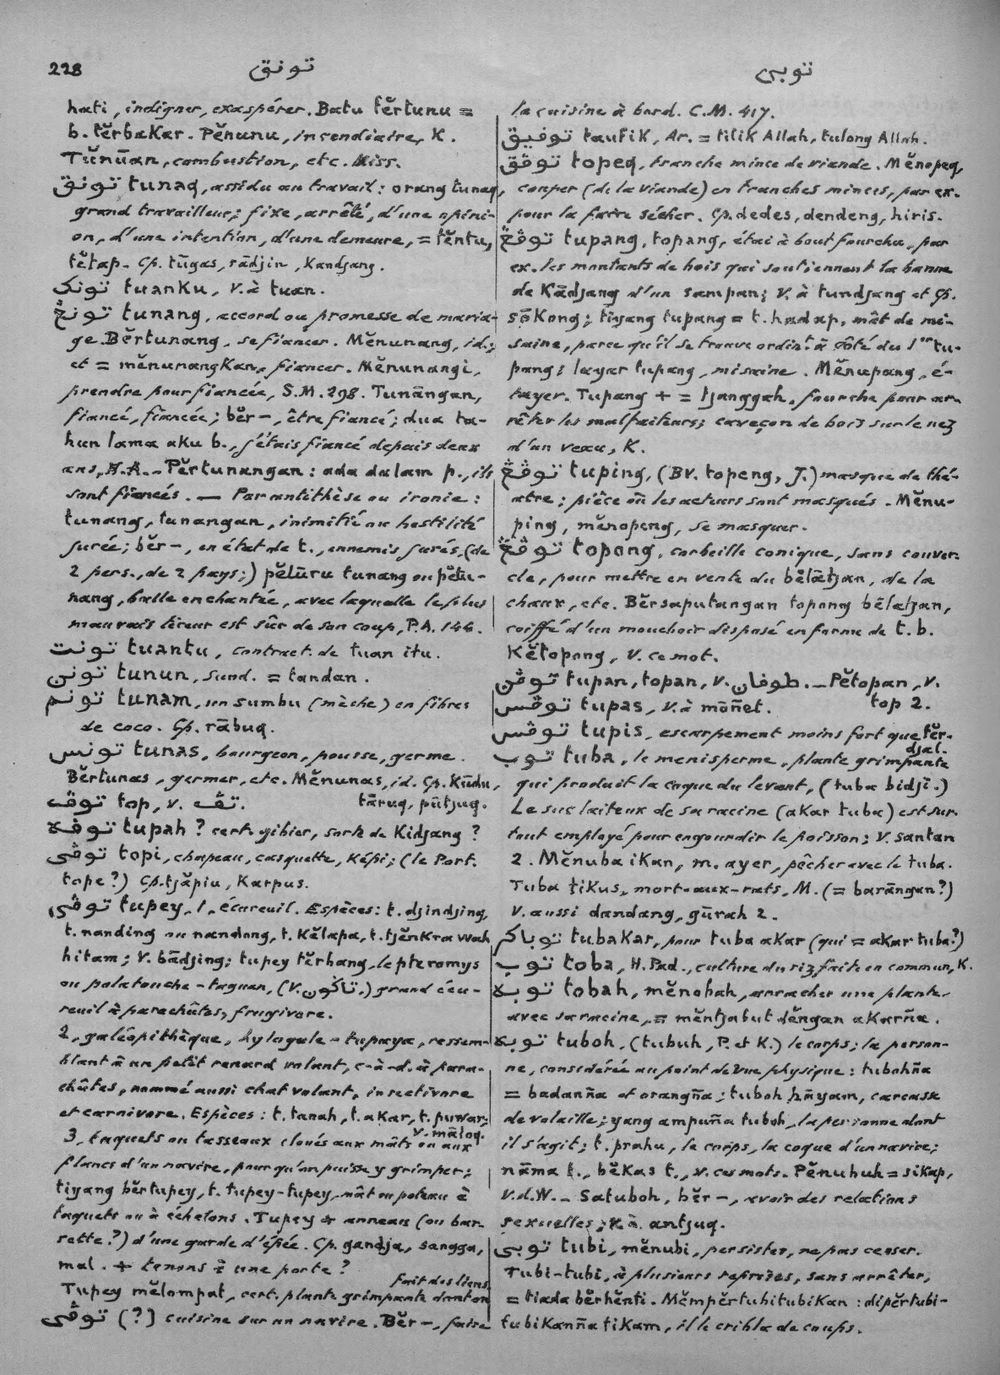 228 تونق توبي
hati, indigner, exaspérer. Batu tĕrtunu =
b. tĕrbakar. Pĕnunu, incendiaire, K.
Tŭnŭan, combustion, etc. Miss.
تونق tunaq, assidu au travail: orang tunaq,
grand travailleur; fixe, arrêté, d'une opini-
on, d'une intention, d'une demeure, = tĕntu,
tĕtap. Cp. tūgas, rādjin, Kandjang.
تونک tuanKu, v. à tuan.
تونڠ tunang, accord ou promesse de maria-
ge. Bĕrtunang, se fiancer. Mĕnunang, id.;
et = mĕnunangKan, fiancer. Mĕnunangi,
prendre pour fiancée, S.M. 298. Tunāngan,
fiancé, fiancée; bĕr-, être fiancé; dua ta-
hun lama aKu b., j'étais fiancé depuis deux
ans, H.A. - Pĕrtunangan: ada dalam p., ils
sont fiancés. — Par antithèse ou ironie:
tunang, tunangan, inimitié ou hostilité
jurée; bĕr-, en état de t., ennemis jurés, (de
2 pers., de 2 pays;) pĕlūru tunang ou pĕtu-
nang, balle enchantée, avec laquelle le plus
mauvais tireur est sûr de son coup, P.A. 144.
تونت tuantu, contract. de tuan itu.
تونن tunun, sund. = tandan.
تونم tunam, un sumbu (mèche) en fibres
de coco. Cp. rābuq.
تونس tunas, bourgeon, pousse, germe.
Bĕrtunas, germer, etc. Mĕnunas, id. Cp. Kūdu,
tāruq, pūtjuq.
توڤ top, v. تڤ.
توڤه tupah? cert. gibier, sorte de Kidjang?
توڤي topi, chapeau, casquette, Képi; (le Port.
tope?) Cp. tjāpiu, Karpus.
توڤي tupey, 1, écureuil. Espèces: t. djindjing,
t. nanding ou nandong, t. Kĕlapa, t. tjĕnKrawah
hitam; v. bādjing; tupey tĕrbang, le pteromys
ou polatouche-taguan, (v. تاکون.) grand écu-
reuil à parachûtes, frugivore.
2, galéopithèque, hylogale-tupaya, ressem-
blant à un petit renard volant, c-à-d. à para-
chûtes, nommé aussi chat volant, insectivore
et carnivore. Espèces: t. tanah, t. aKar, t. puwar;
v. mālog.
3, taquets ou tasseaux cloués aux mâts ou aux
flancs d'un navire, pour qu'on puisse y grimper;
tiyang bĕrtupey, t. tupey-tupey, mât ou poteau à
taquets ou à échelons. Tupey + anneau (ou bar-
rette?) d'une garde d'épée. Cp. gandja, sangga,
mal. + tenons à une porte?
Tupey mĕlompat, cert. plante grimpante dont on
fait des liens.
توڤي (?) cuisine sur un navire. Bĕr-, faire
la cuisine à bord. C.M. 417.
توفيق taufik, Ar. = titik Allah, tulong Allah.
توڤق topeq, tranche mince de viande. Mĕnopeq,
couper (de la viande) en tranches minces, par ex.
pour la faire sécher. Cp. dedes, dendeng, hiris.
توڤڠ tupang, topang, étai à bout fourchu, par
ex. les montants de bois qui soutiennent la banne
de Kādjang d'un sampan; v. à tundjang et cp.
sōKong; tiyang tupang = t. hadap, mât de mi-
saine, parce qu'il se trouve ordint. à côté du 1er tu-
pang; layar tupang, misaine. Mĕnupang, é-
tayer. Tupang + = tjanggah, fourche pour ar-
rêter les malfaiteurs; caveçon de bois sur le nez
d'un veau, K.
توڤڠ tuping, (Bv. topeng, J.) masque de thé-
atre; pièce où les acteurs sont masqués. Mĕnu-
ping, mĕnopeng, se masquer.
توڤڠ topong, corbeille conique, sans couver-
cle, pour mettre en vente du bĕlātjan, de la
chaux, etc. Bĕrsaputangan topong bĕlatjan,
coiffé d'un mouchoir disposé en forme de t. b.
Kĕtopong, v. ce mot.
توڤن tupan, topan, v. طوفان. - Pĕtopan, v.
top 2.
توڤس tupas, v. à māñet.
توڤس tupis, escarpement moins fort que tĕr-
djal.
توب tuba, le menisperme, plante grimpante
qui produit la coque du levant, (tuba bidji.)
Le suc laiteux de sa racine (aKar tuba) est sur-
tout employé pour engourdir le poisson; v. santan
2. Mĕnuba iKan, m. ayer, pêcher avec le tuba.
Tuba tiKus, mort-aux-rats, M. (= barāngan?)
v. aussi dandang, gūrah 2.
توباكر tubaKar, pour tuba aKar (qui = aKar tuba?)
توب toba, H. Pad., culture du riz faite en commun, K.
توبه tobah, mĕnobah, arracher une plante
avec sa racine, = mĕntjabut dĕngan aKarña.
توبه tuboh, (tubuh, P. et K.) le corps; la person-
ne, considérée au point de vue physique: tubohña
= badanña et orangña; tuboh hāyam, carcasse
de volaille; yang ampuña tuboh, la personne dont
il s'agit; t. prahu, le corps, la coque d'un navire;
nāma t., bĕkas t., v. ces mots. Pĕnubuh = siKap,
v.d.W. - Satuboh, bĕr-, avoir des relations
sexuelles; K. à antjuq.
توبي tubi, mĕnubi, persister, ne pas cesser.
Tubi-tubi, à plusieurs reprises, sans arrêter,
= tiada bĕrhĕnti. MĕmpĕrtubitubiKan: dipĕrtubi-
tubiKanña tiKam, il le cribla de coups.